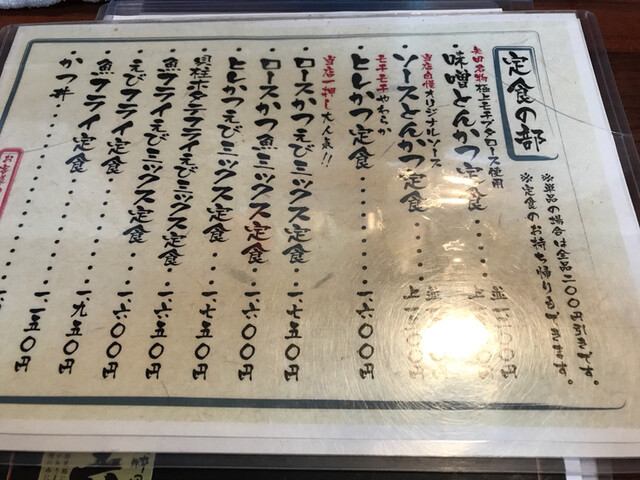 定食の部
※単品の場合は全品二〇〇円引きです。
※定食のお持ち帰りもできます。
名物極上モチブタロース使用
・味噌とんかつ定食・・・
当店自慢オリジナルソース
・ソースとんかつ定食・・・
モチモチやわらか
・ヒレかつ定食・・・・・・一、六〇〇円
当店一押し大人気!!
・ロースかつえびミックス定食・・一、七五〇円
・ロースかつ魚ミックス定食・・・一、六〇〇円
・ヒレかつえびミックス定食・・・一、七五〇円
・貝柱ホタテフライえびミックス定食・・一、六五〇円
・魚フライえびミックス定食・・・一、六〇〇円
・えびフライ定食・・・・・・一、九五〇円
・魚フライ定食・・・・・・一、一五〇円
・かつ丼・・・・・・・・・一、